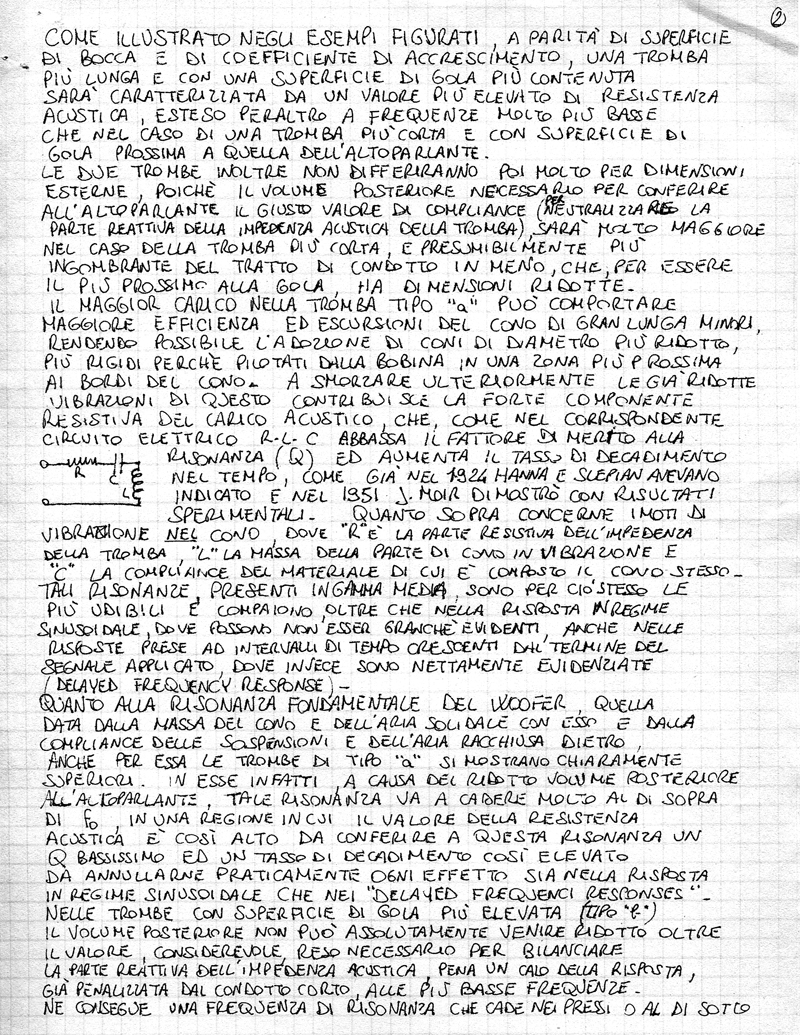 2
COME ILLUSTRATO NEGLI ESEMPI FIGURATI, A PARITÀ DI SUPERFICIE
DI BOCCA E DI COEFFICIENTE DI ACCRESCIMENTO, UNA TROMBA
PIÙ LUNGA E CON UNA SUPERFICIE DI GOLA PIÙ CONTENUTA
SARA' CARATTERIZZATA DA UN VALORE PIÙ ELEVATO DI RESISTENZA
ACUSTICA, ESTESO PERALTRO A FREQUENZE MOLTO PIÙ BASSE
CHE NEL CASO DI UNA TROMBA PIÙ CORTA E CON SUPERFICIE DI
GOLA PROSSIMA A QUELLA DELL'ALTOPARLANTE.
LE DUE TROMBE INOLTRE NON DIFFERIRANNO POI MOLTO PER DIMENSIONI
ESTERNE, POICHÈ IL VOLUME POSTERIORE NECESSARIO PER CONFERIRE
ALL'ALTOPARLANTE IL GIUSTO VALORE DI COMPLIANCE (PER NEUTRALIZZARE LA
PARTE REATTIVA DELLA IMPEDENZA ACUSTICA DELLA TROMBA), SARÀ MOLTO MAGGIORE
NEL CASO DELLA TROMBA PIÙ CORTA, E PRESUMIBILMENTE PIÙ
INGOMBRANTE DEL TRATTO DI CONDOTTO IN MENO, CHE, PER ESSERE
IL PIÙ PROSSIMO ALLA GOLA, HA DIMENSIONI RIDOTTE.-
IL MAGGIOR CARICO NELLA TROMBA TIPO "a" PUÒ COMPORTARE
MAGGIORE EFFICIENZA ED ESCURSIONI DEL CONO DI GRAN LUNGA MINORI,
RENDENDO POSSIBILE L'ADOZIONE DI CONI DI DIAMETRO PIÙ RIDOTTO,
PIÙ RIGIDI PERCHÈ PILOTATI DALLA BOBINA IN UNA ZONA PIÙ PROSSIMA
AI BORDI DEL CONO.- A SMORZARE ULTERIORMENTE LE GIÀ RIDOTTE
VIBRAZIONI DI QUESTO CONTRIBUISCE LA FORTE COMPONENTE
RESISTIVA DEL CARICO ACUSTICO, CHE, COME NEL CORRISPONDENTE
CIRCUITO ELETTRICO R-L-C ABBASSA IL FATTORE DI MERITO ALLA
RISONANZA (Q) ED AUMENTA IL TASSO DI DECADIMENTO
R C L
NEL TEMPO, COME GIÀ NEL 1924 HANNA E SLEPIAN AVEVANO
INDICATO E NEL 1951 J. MOIR DIMOSTRÒ CON RISULTATI
SPERIMENTALI.- QUANTO SOPRA CONCERNE I MOTI DI
VIBRAZIONE NEL CONO, DOVE "R" È LA PARTE RESISTIVA DELL'IMPEDENZA
DELLA TROMBA, "L" LA MASSA DELLA PARTE DI CONO IN VIBRAZIONE E
"C" LA COMPLIANCE DEL MATERIALE DI CUI E' COMPOSTO IL CONO STESSO-
TALI RISONANZE, PRESENTI IN GAMMA MEDIA, SONO PER CIÒ STESSO LE
PIÙ UDIBILI E COMPAIONO, OLTRE CHE NELLA RISPOSTA IN REGIME
SINUSOIDALE, DOVE POSSONO NON ESSER GRANCHÈ EVIDENTI, ANCHE NELLE
RISPOSTE PRESE AD INTERVALLI DI TEMPO CRESCENTI DAL TERMINE DEL
SEGNALE APPLICATO, DOVE INVECE SONO NETTAMENTE EVIDENZIATE
(DELAYED FREQUENCY RESPONSE)-
QUANTO ALLA RISONANZA FONDAMENTALE DEL WOOFER, QUELLA
DATA DALLA MASSA DEL CONO E DELL'ARIA SOLIDALE CON ESSO E DALLA
COMPLIANCE DELLE SOSPENSIONI E DELL'ARIA RACCHIUSA DIETRO,
ANCHE PER ESSA LE TROMBE DI TIPO "a" SI MOSTRANO CHIARAMENTE
SUPERIORI. IN ESSE INFATTI, A CAUSA DEL RIDOTTO VOLUME POSTERIORE
ALL'ALTOPARLANTE, TALE RISONANZA VA A CADERE MOLTO AL DI SOPRA
DI fo, IN UNA REGIONE IN CUI IL VALORE DELLA RESISTENZA
ACUSTICA E' COSÌ ALTO DA CONFERIRE A QUESTA RISONANZA UN
Q BASSISSIMO ED UN TASSO DI DECADIMENTO COSÌ ELEVATO
DA ANNULLARNE PRATICAMENTE OGNI EFFETTO SIA NELLA RISPOSTA
IN REGIME SINUSOIDALE CHE NEI "DELAYED FREQUENCI RESPONSES"-
NELLE TROMBE CON SUPERFICIE DI GOLA PIÙ ELEVATA (TIPO "b")
IL VOLUME POSTERIORE NON PUÒ ASSOLUTAMENTE VENIRE RIDOTTO OLTRE
IL VALORE, CONSIDEREVOLE, RESO NECESSARIO PER BILANCIARE
LA PARTE REATTIVA DELL'IMPEDENZA ACUSTICA, PENA UN CALO DELLA RISPOSTA,
GIÀ PENALIZZATA DAL CONDOTTO CORTO, ALLE PIÙ BASSE FREQUENZE.-
NE CONSEGUE UNA FREQUENZA DI RISONANZA CHE CADE NEI PRESSI O AL DI SOTTO